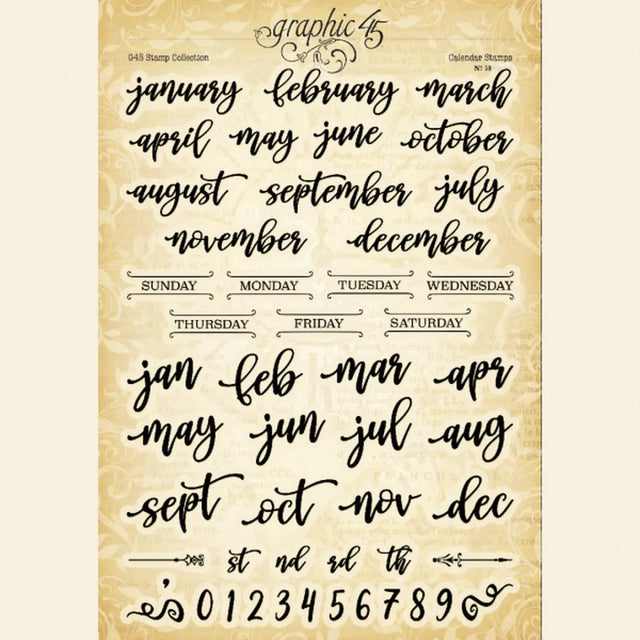 graphic 45
G45 Stamp Collection Calendar Stamps
Nº 50
january february march
april may june october
august september july
november december
SUNDAY MONDAY TUESDAY WEDNESDAY
THURSDAY FRIDAY SATURDAY
jan feb mar apr
may jun jul aug
sept oct nov dec
st nd rd th
's 0 1 2 3 4 5 6 7 8 9